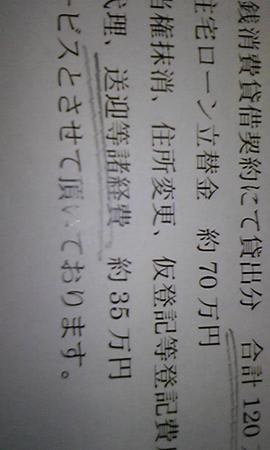 銭消費貸借契約にて貸出分 合計120
住宅ローン立替金 約70万円
当権抹消、住所変更、仮登記等登記費
代理、送迎等諸経費 約35万円
ービスとさせて頂いております。